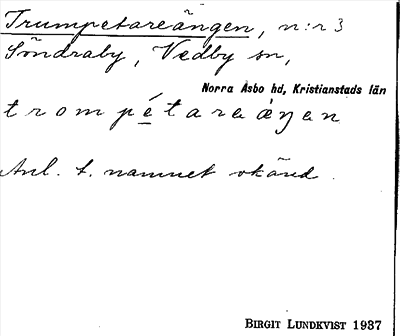 Trumpetareängen, n:r 3
Söndraby, Vedby sn,
Norra Asbo hd, Kristianstads län
trompétareàŋen
Anl. t. namnet okänd.
BIRGIT LUNDKVIST 1937